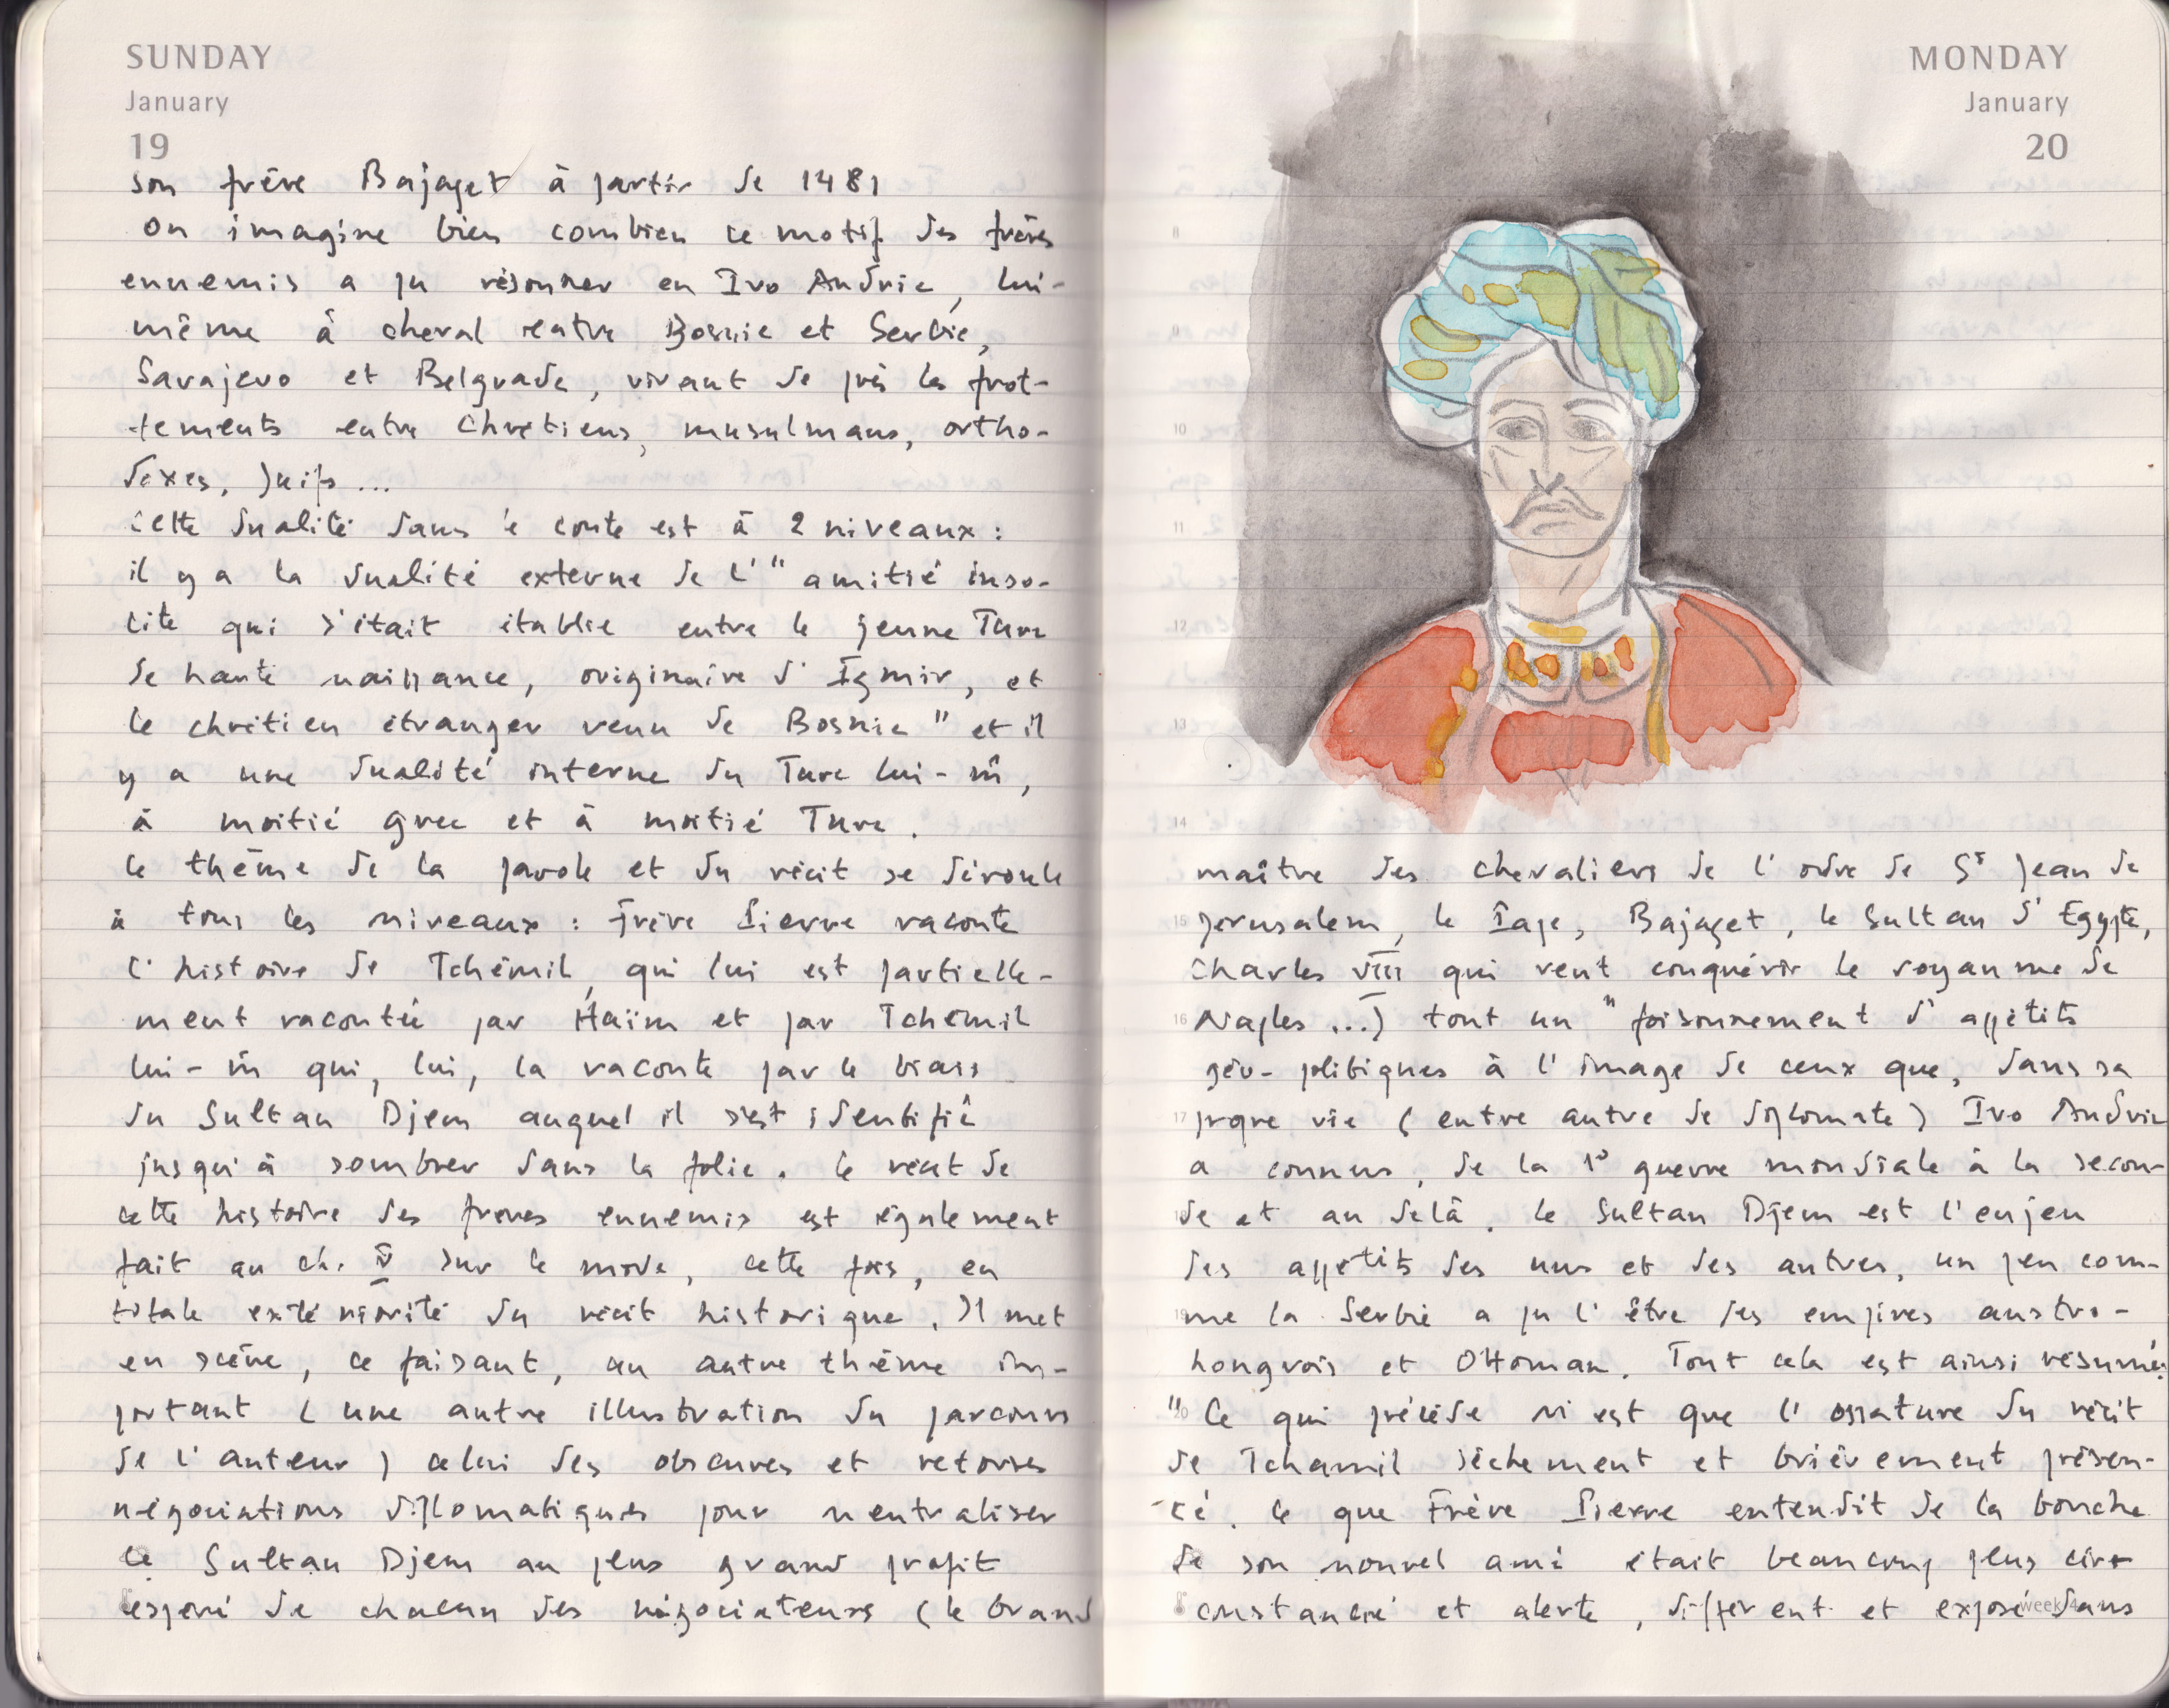 SUNDAY
January
19
son frère Bajazet à partir de 1481
On imagine bien combien ce motif des frères
ennemis a pu résonner en Ivo Andric, lui-
même à cheval entre Bosnie et Serbie,
Sarajevo et Belgrade, vivant de près les frot-
tements entre Chrétiens, musulmans, ortho-
doxes, Juifs ...
Cette dualité dans le conte est à 2 niveaux :
il y a la dualité externe de l'"amitié inso-
lite qui s'était établie entre le jeune Turc
de haute naissance, originaire d'Izmir, et
le chrétien étranger venu de Bosnie" et il
y a une dualité interne du Turc lui-m̂,
à moitié grec et à moitié Turc.
le thème de la parole et du récit se déroule
à tous les niveaux : Frère Pierre raconte
l'histoire de Tchémil, qui lui est partielle-
ment racontée par Haïm et par Tchémil
lui-m̂ qui, lui, la raconte par le biais
du Sultan Djem auquel il s'est identifié
jusqu'à sombrer dans la folie. Le récit de
cette histoire des frères ennemis est également
fait au ch. V sur le mode, cette fois, en
totale extériorité du récit historique. Il met
en scène, ce faisant, un autre thème im-
portant (une autre illustration du parcours
de l'auteur) celui des obscures et retorses
négociations diplomatiques pour neutraliser
le Sultan Djem au plus grand profit
espéré de chacun des négociateurs (le Grand
MONDAY
January
20
8
9
10
11
12
13
14
maître des chevaliers de l'ordre de St Jean de
15 Jérusalem, le Pape, Bajazet, le Sultan d'Egypte,
Charles VIII qui veut conquérir le royaume de
16 Naples ...) tout un "foisonnement d'appétits
géo-politiques à l'image de ceux que, dans sa
17 propre vie (entre autre de diplomate) Ivo Andric
a connus, de la 1° guerre mondiale à la secon-
18 de et au delà. Le Sultan Djem est l'enjeu
des appétits des uns et des autres, un peu com-
19 me la Serbie a pu l'être des empires austro-
hongrois et Ottoman. Tout cela est ainsi résumé:
20 "Ce qui précède n'est que l'ossature du récit
de Tchamil sèchement et brièvement présen-
té. Ce que Frère Pierre entendit de la bouche
de son nouvel ami était beaucoup plus cir-
constancié et alerte, différent et exposé dans
week 4